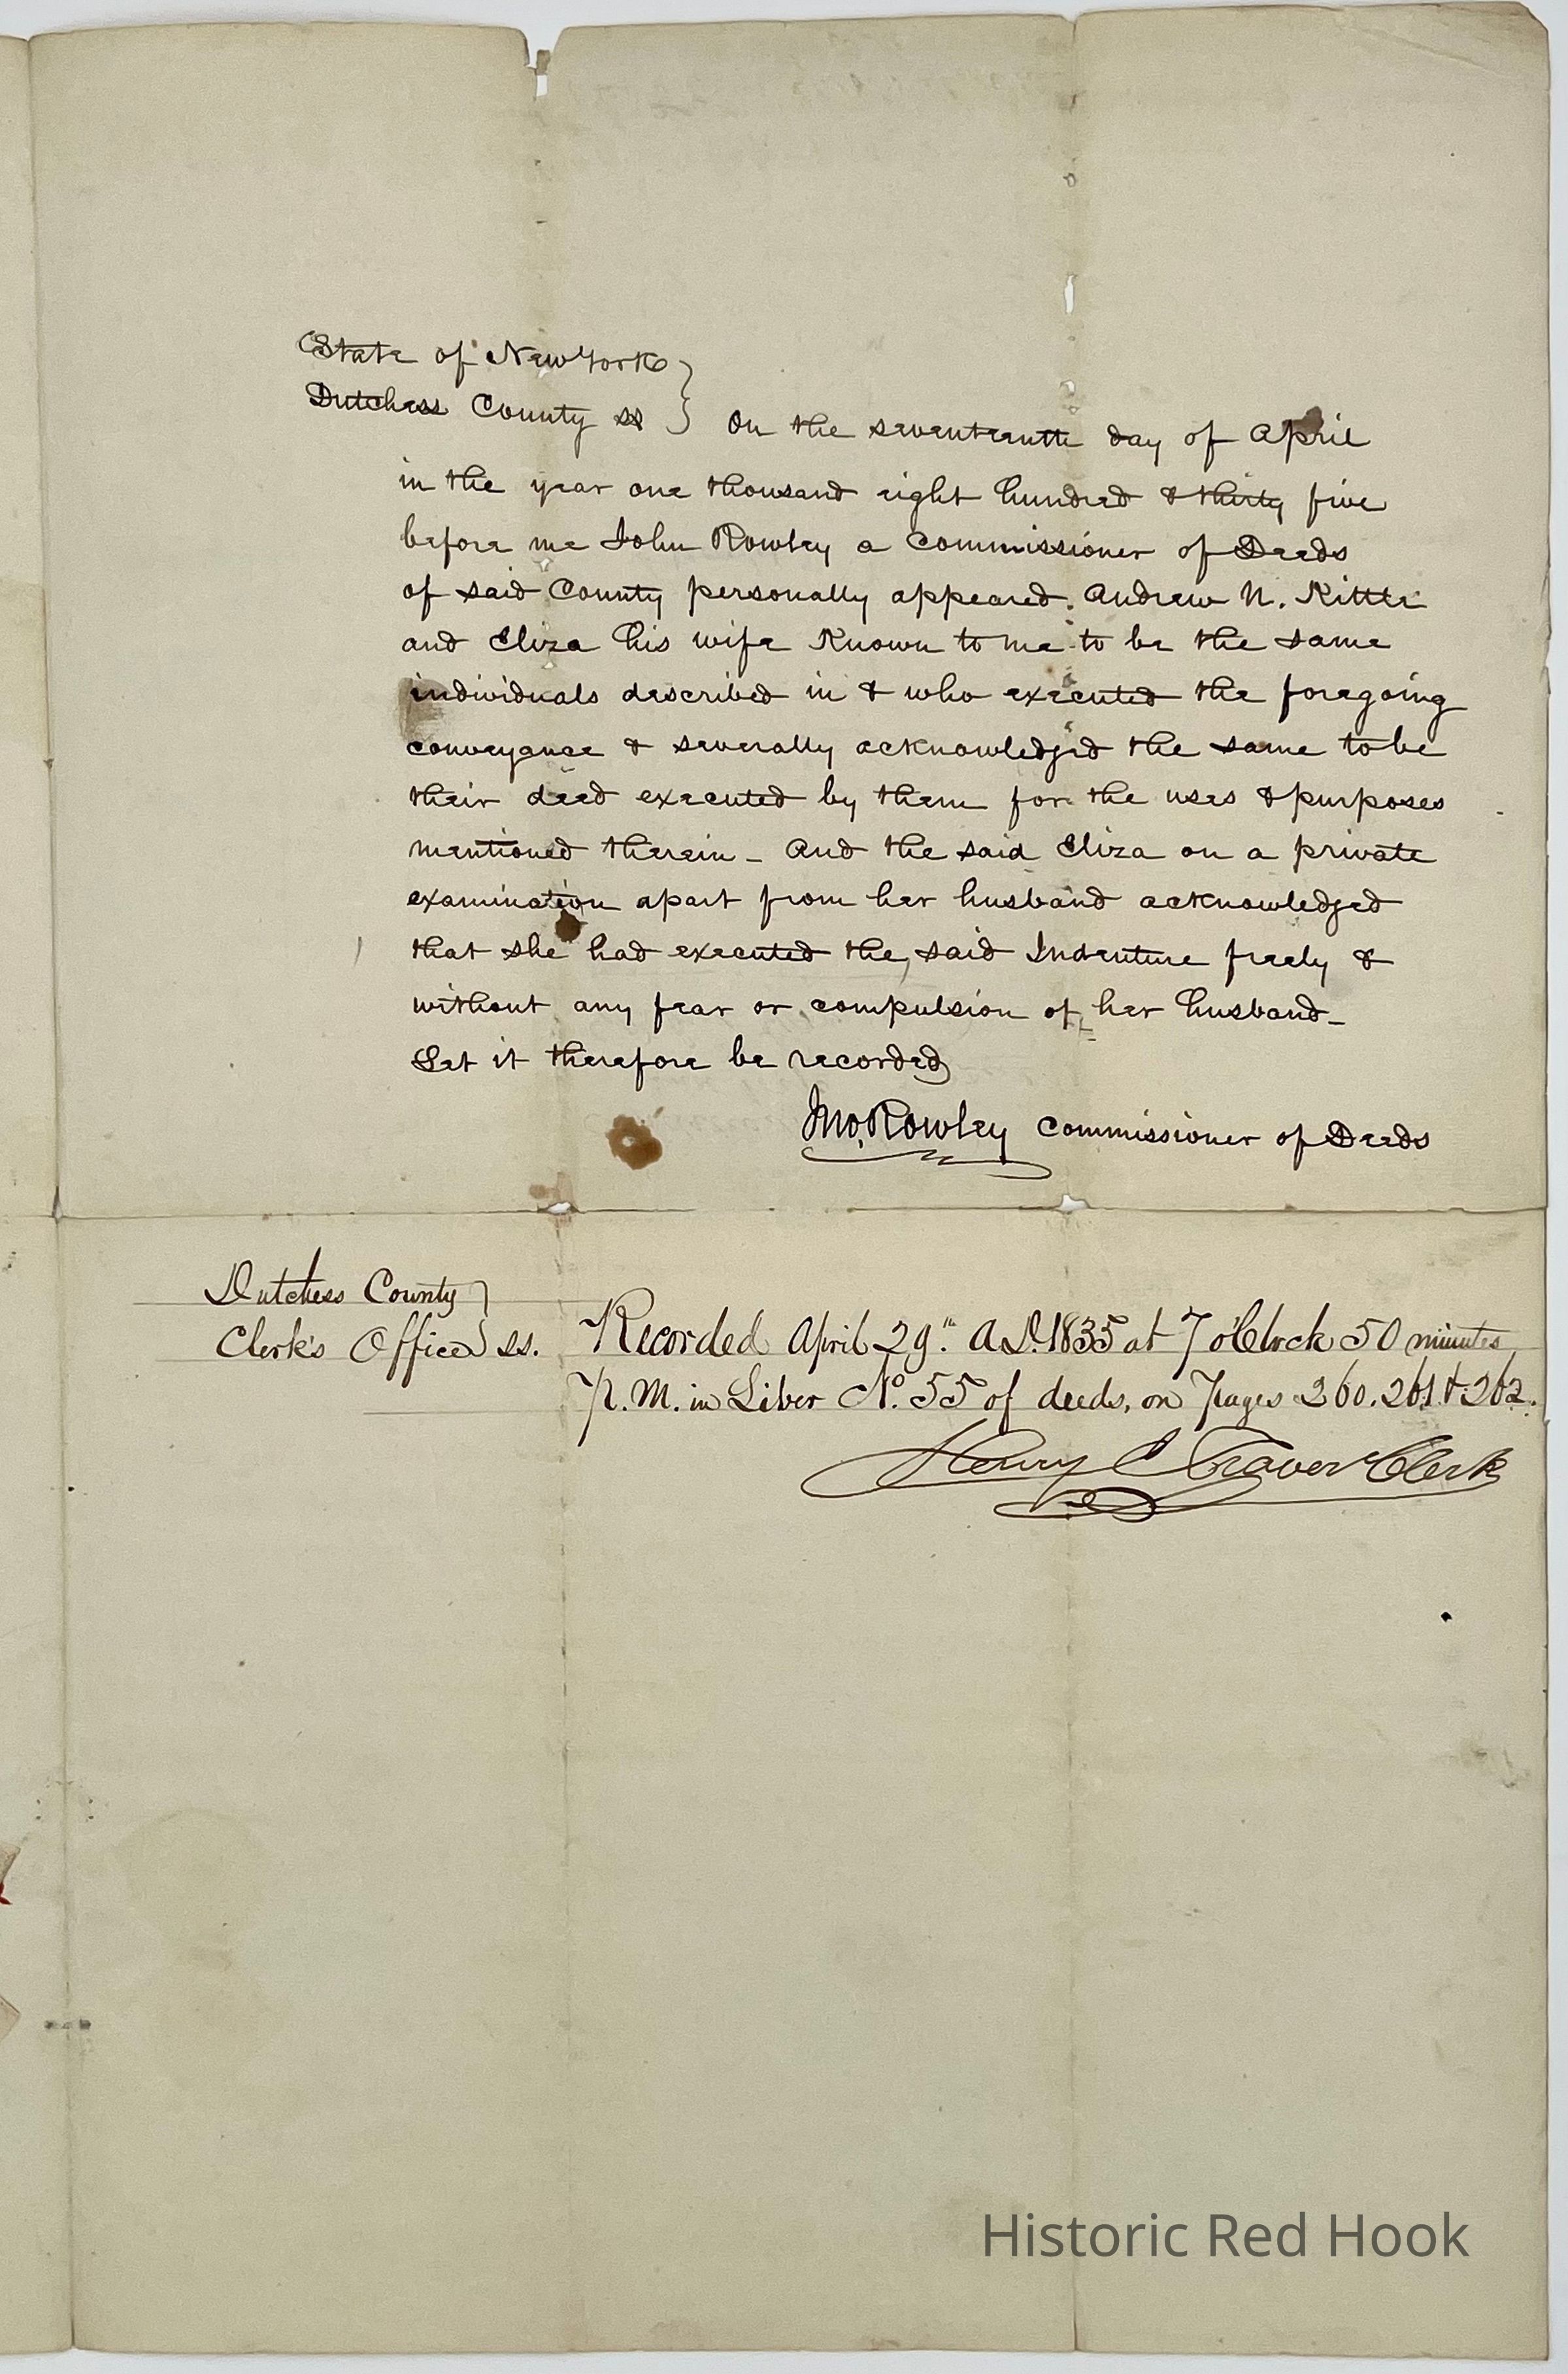 State of New York }
Dutchess County ss } On the seventeenth day of April
in the year one thousand eight hundred & thirty five
before me John Rowley a commissioner of Deeds
of said County personally appeared. Andrew N. Kittle
and Eliza his wife Known to me to be the same
individuals described in & who executed the foregoing
conveyance & severally acknowledged the same to be
their deed executed by them for the uses & purposes
mentioned therein - And the said Eliza on a private
examination apart from her husband acknowledged
that she had executed the said Indenture freely &
without any fear or compulsion of her husband -
Let it therefore be recorded
Jno. Rowley commissioner of Deeds
Dutchess County }
Clerk's Office } ss. Recorded April 29." A.D. 1835 at 7 o'Clock 50 minutes
P. M. in Liber No. 55 of deeds, on Pages 260. 261 & 262.
Henry C Traver Clerk
Historic Red Hook